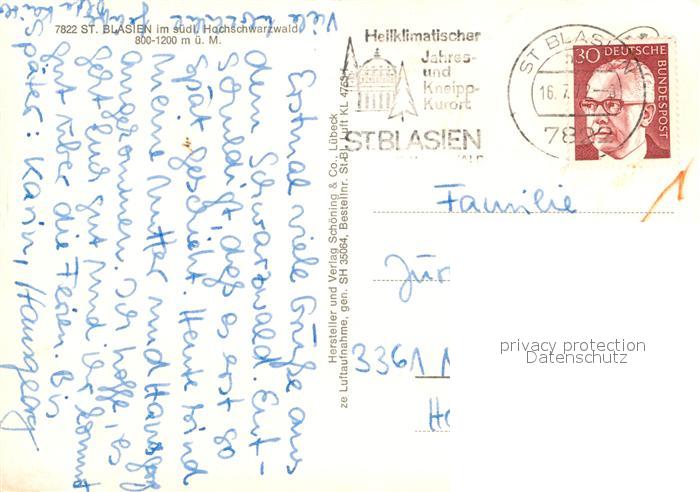 7822 ST. BLASIEN im südl. Hochschwarzwald
800-1200 m ü. M.
Erstmal viele Grüße aus
dem Schwarzwald. Ent-
schuldigt, dass es erst so
spät geschieht. Heute sind
meine Mutter und Hansgeorg
angekommen. Ich hoffe, es
geht Euch gut und Ihr kommt
gut über die Ferien. Bis
später: Karin, Hansgeorg
Viele
Hersteller und Verlag Schöning & Co., Lübeck
ze Luftaufnahme, gen. SH 35064, Bestellnr. St. B. Luft KL 4763
Heilklimatischer
Jahres-
und
Kneipp-
Kurort
ST. BLASIEN
ST BLASIEN
16. 7.
30 DEUTSCHE
BUNDESPOST
Familie
Jür
3361
privacy protection
Datenschutz